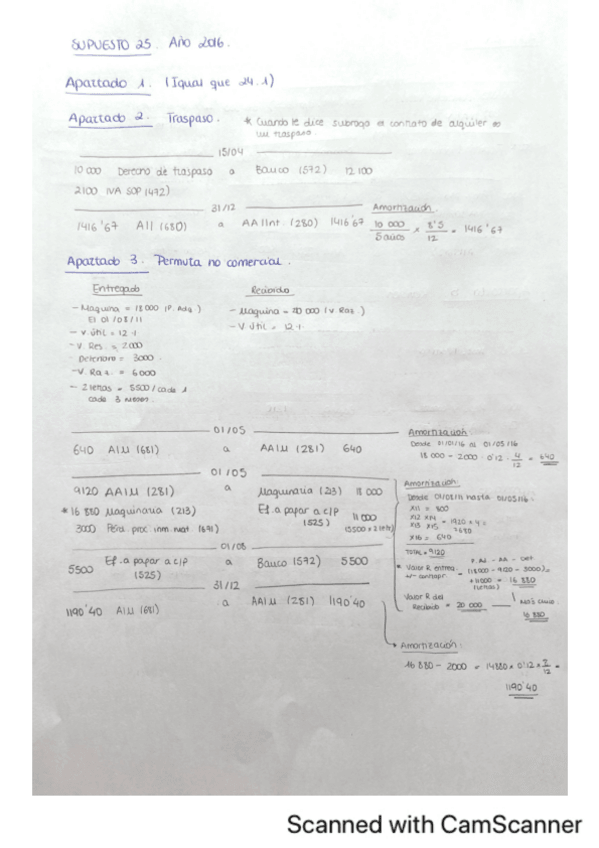 SUPUESTO 25. Año 2016.
Apartado 1. (Igual que 24.1)
Apartado 2. Traspaso. * Cuando le dice subroga el contrato de alquiler es un traspaso.
15/04
10 000 Derecho de traspaso a Banco (572) 12 100
2100 IVA SOP (472)
31/12
1416'67 AII (680) a AA IInt. (280) 1416'67
Amortización.
10 000 / 5 años x 8'5 / 12 = 1416'67
Apartado 3. Permuta no comercial.
Entregado
- Maquina = 18 000 (P. Adq.)
El 01/08/11
- V útil = 12 %
- V. Res. = 2000
- Deterioro = 3000
- V. Raz. = 6000
- 2 letras = 5500 / cada 1
cada 3 meses.
Recibido
- Maquina = 20 000 (V. Raz.)
- V útil = 12 %
01/05
640 AIM (681) a AAIM (281) 640
Amortización.
Desde 01/01/16 al 01/05/16
18 000 - 2000 · 0'12 · 4/12 = 640
01/05
9120 AAIM (281) a Maquinaria (213) 18 000
* 16 880 Maquinaria (213) Ef. a pagar a c/p (525) 11 000
(5500 x 2 letras)
3000 Pérd. proc. inm. mat. (691)
Amortización:
Desde 01/08/11 hasta 01/05/16.
X11 = 800
X12 X14
X13 X15 = 1920 x 4 =
7680
X16 = 640
TOTAL = 9120
P. Ad - AA - Det.
* Valor R. entreg. = (18 000 - 9120 - 3000) =
+/- contrapr.
+ 11 000 = 16 880
(letras)
Valor R del Recibido = 20 000
16 880
01/08
5500 Ef. a pagar a c/p (525) a Banco (572) 5500
31/12
1190'40 AIM (681) a AAIM (281) 1190'40
Amortización:
16 880 - 2000 = 14880 x 0'12 x 8/12 =
1190'40
Scanned with CamScanner